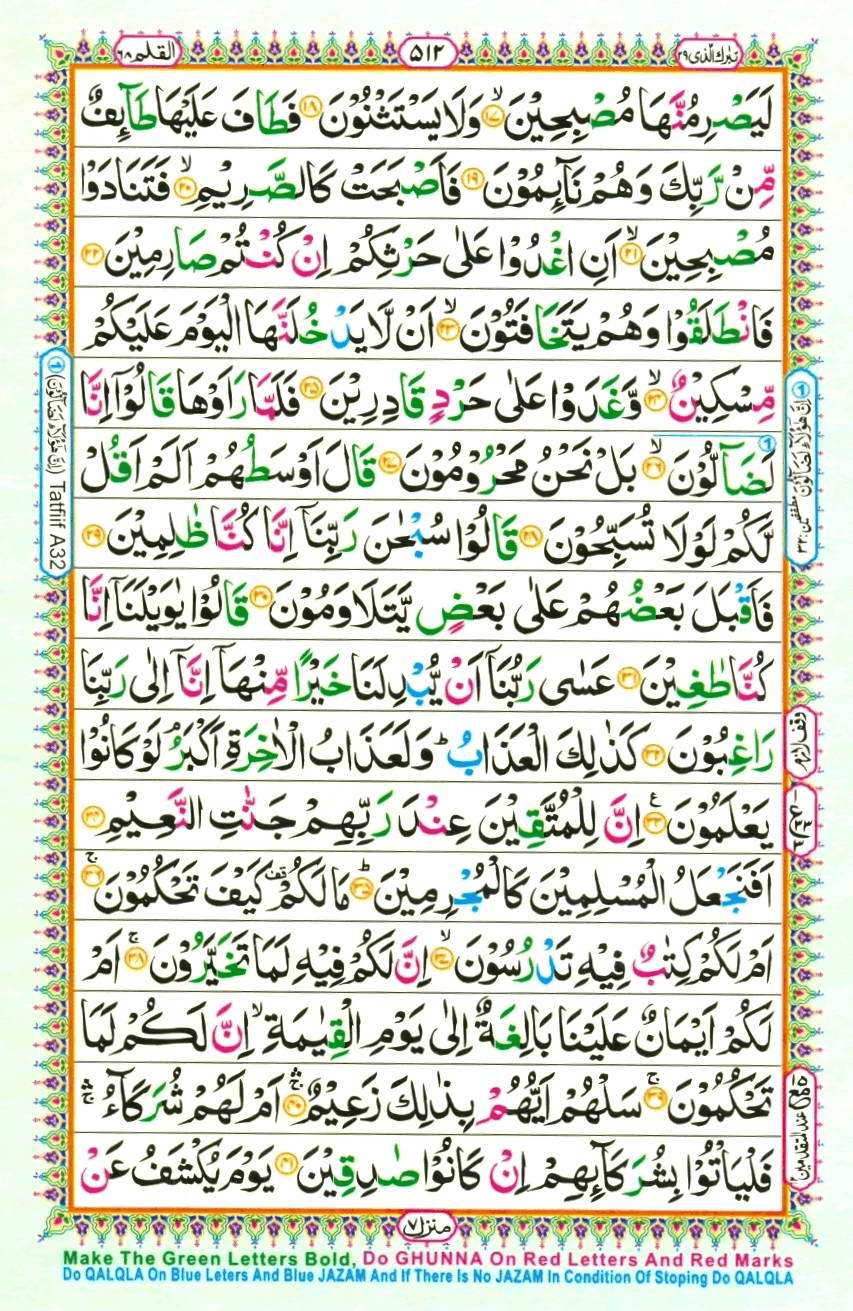 تبرك الذی ۲۹
۵۱۲
القلم ۶۸
لَیَصْرِمُنَّهَا مُصْبِحِیْنَ ۙ﴿۱۷﴾ وَلَا یَسْتَثْنُوْنَ ﴿۱۸﴾ فَطَافَ عَلَیْهَا طَآئِفٌ
مِّنْ رَّبِّكَ وَهُمْ نَآئِمُوْنَ ﴿۱۹﴾ فَاَصْبَحَتْ كَالصَّرِیْمِ ۙ﴿۲۰﴾ فَتَنَادَوْا
مُصْبِحِیْنَ ۙ﴿۲۱﴾ اَنِ اغْدُوْا عَلٰی حَرْثِكُمْ اِنْ كُنْتُمْ صَارِمِیْنَ ﴿۲۲﴾
فَانْطَلَقُوْا وَهُمْ یَتَخَافَتُوْنَ ۙ﴿۲۳﴾ اَنْ لَّا یَدْخُلَنَّهَا الْیَوْمَ عَلَیْكُمْ
مِّسْكِیْنٌ ۙ﴿۲۴﴾ وَّغَدَوْا عَلٰی حَرْدٍ قَادِرِیْنَ ﴿۲۵﴾ فَلَمَّا رَاَوْهَا قَالُوْۤا اِنَّا
لَضَآلُّوْنَ ۙ﴿۲۶﴾ بَلْ نَحْنُ مَحْرُوْمُوْنَ ﴿۲۷﴾ قَالَ اَوْسَطُهُمْ اَلَمْ اَقُلْ
لَّكُمْ لَوْلَا تُسَبِّحُوْنَ ﴿۲۸﴾ قَالُوْا سُبْحٰنَ رَبِّنَاۤ اِنَّا كُنَّا ظٰلِمِیْنَ ﴿۲۹﴾
فَاَقْبَلَ بَعْضُهُمْ عَلٰی بَعْضٍ یَّتَلَاوَمُوْنَ ﴿۳۰﴾ قَالُوْا یٰوَیْلَنَاۤ اِنَّا
كُنَّا طٰغِیْنَ ﴿۳۱﴾ عَسٰی رَبُّنَاۤ اَنْ یُّبْدِلَنَا خَیْرًا مِّنْهَاۤ اِنَّاۤ اِلٰی رَبِّنَا
رَاغِبُوْنَ ﴿۳۲﴾ كَذٰلِكَ الْعَذَابُ ؕ وَلَعَذَابُ الْاٰخِرَةِ اَكْبَرُ لَوْ كَانُوْا
یَعْلَمُوْنَ ﴿۳۳﴾ۧ اِنَّ لِلْمُتَّقِیْنَ عِنْدَ رَبِّهِمْ جَنّٰتِ النَّعِیْمِ ﴿۳۴﴾
اَفَنَجْعَلُ الْمُسْلِمِیْنَ كَالْمُجْرِمِیْنَ ؕ﴿۳۵﴾ مَا لَكُمْ قف كَیْفَ تَحْكُمُوْنَ ۚ﴿۳۶﴾
اَمْ لَكُمْ كِتٰبٌ فِیْهِ تَدْرُسُوْنَ ۙ﴿۳۷﴾ اِنَّ لَكُمْ فِیْهِ لَمَا تَخَیَّرُوْنَ ۚ﴿۳۸﴾ اَمْ
لَكُمْ اَیْمَانٌ عَلَیْنَا بَالِغَةٌ اِلٰی یَوْمِ الْقِیٰمَةِ ۙ اِنَّ لَكُمْ لَمَا
تَحْكُمُوْنَ ۚ﴿۳۹﴾ سَلْهُمْ اَیُّهُمْ بِذٰلِكَ زَعِیْمٌ ۚۛ﴿۴۰﴾ اَمْ لَهُمْ شُرَكَآءُ ۚۛ
فَلْیَاْتُوْا بِشُرَكَآئِهِمْ اِنْ كَانُوْا صٰدِقِیْنَ ﴿۴۱﴾ یَوْمَ یُكْشَفُ عَنْ
۱ اِنَّ هٰۤؤُلَآءِ لَضَآلُّوْنَ مطففین: ۳۲
وقف لازم
۱ (اِنَّ هٰۤؤُلَآءِ لَضَآلُّوْنَ) Tatfiif A32
منزل ۷
Make The Green Letters Bold, Do GHUNNA On Red Letters And Red Marks
Do QALQLA On Blue Leters And Blue JAZAM And If There Is No JAZAM In Condition Of Stoping Do QALQLA